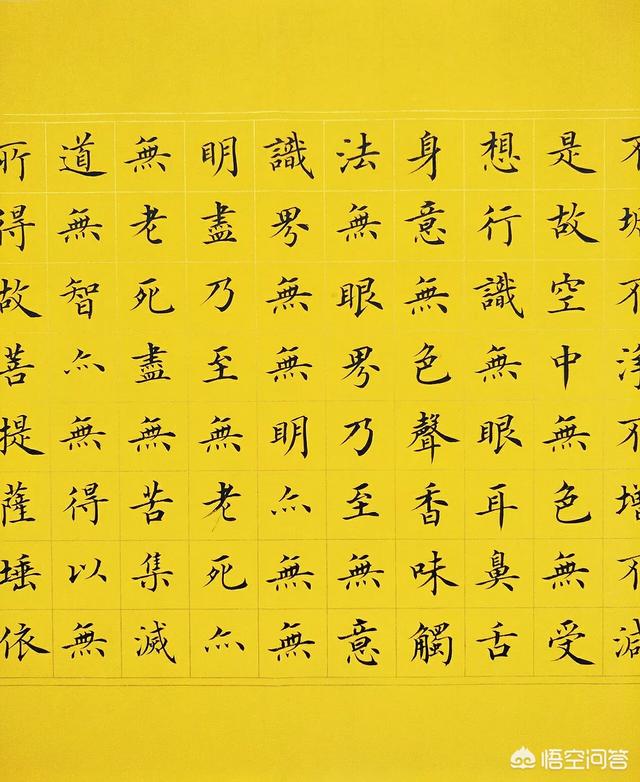 不垢不淨不增不減
是故空中無色無受
想行識無眼耳鼻舌
身意無色聲香味觸
法無眼界乃至無意
識界無無明亦無無
明盡乃至無老死亦
無老死盡無苦集滅
道無智亦無得以無
所得故菩提薩埵依
悟空问答